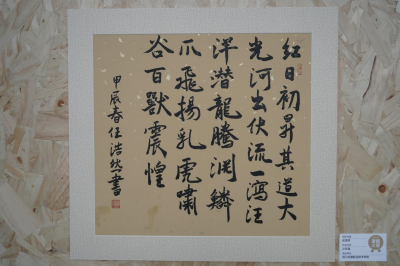 红日初昇其道大
光河出伏流一瀉汪
洋潜龍騰淵鳞
爪飛揚乳虎嘯
谷百獸震惶
甲辰春任浩然書